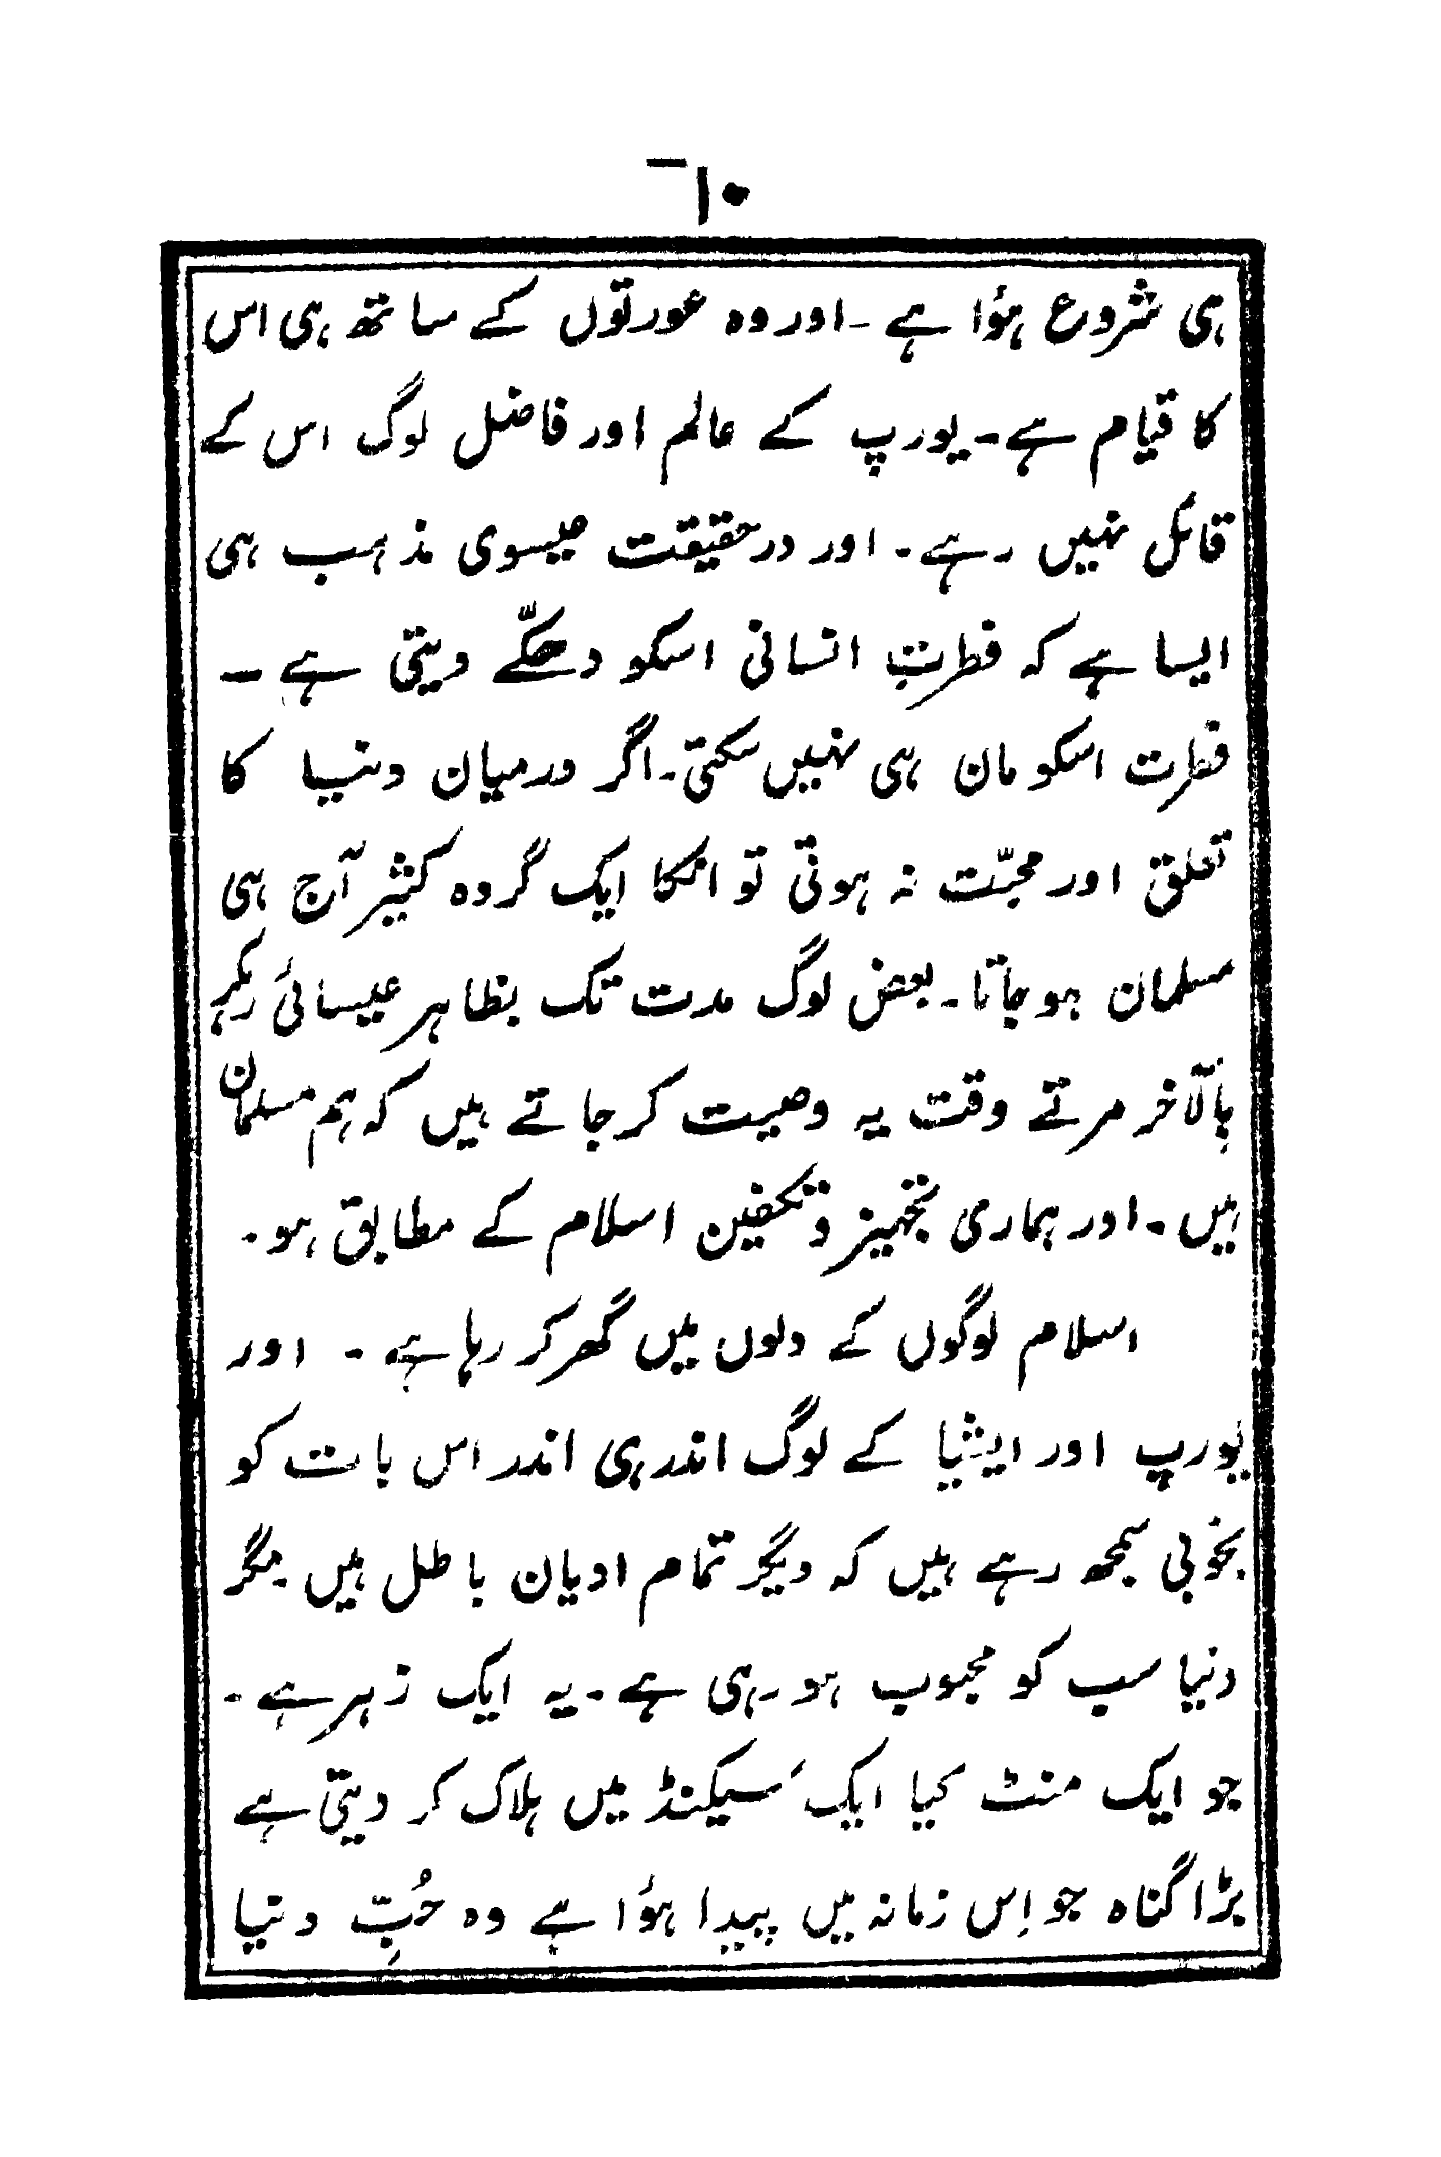 ۱۰
ہی شروع ہؤا ہے ۔ اور وہ عورتوں کے ساتھ ہی اس
کا قیام ہے ۔ یورپ کے عالم اور فاضل لوگ اس کے
قائل نہیں رہے ۔ اور درحقیقت عیسوی مذہب ہی
ایسا ہے کہ فطرتِ انسانی اسکو دھکّے دیتی ہے ۔
فطرت اسکو مان ہی نہیں سکتی ۔ اگر درمیان دنیا کا
تعلق اور محبّت نہ ہوتی تو انکا ایک گروہ کثیر آج ہی
مسلمان ہو جاتا ۔ بعض لوگ مدت تک بظاہر عیسائی رہکر
بالآخر مرتے وقت یہ وصیت کر جاتے ہیں کہ ہم مسلمان
ہیں ۔ اور ہماری تجہیز و تکفین اسلام کے مطابق ہو ۔
اسلام لوگوں کے دلوں میں گھر کر رہا ہے ۔ اور
یورپ اور ایشیا کے لوگ اندر ہی اندر اس بات کو
بخوبی سمجھ رہے ہیں کہ دیگر تمام ادیان باطل ہیں ۔ مگر
دنیا سب کو محبوب ہو رہی ہے ۔ یہ ایک زہر ہے ۔
جو ایک منٹ کیا ایک سیکنڈ میں ہلاک کر دیتی ہے
بڑا گناہ جو اِس زمانہ میں پیدا ہؤا ہے وہ حُبِّ دنیا